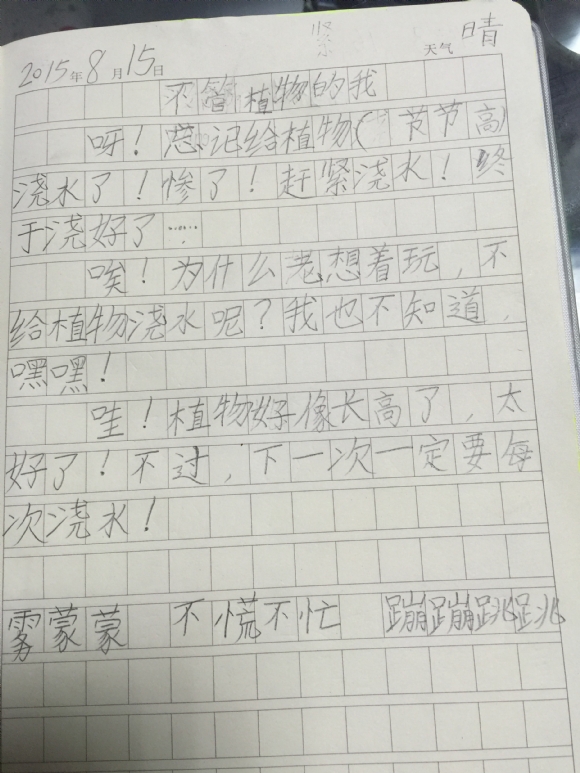 紧
2015年8月15日 天气 晴
不管植物的我
呀！忘记给植物（节节高）
浇水了！惨了！赶紧浇水！终
于浇好了……
唉！为什么老想着玩，不
给植物浇水呢？我也不知道，
嘿嘿！
哇！植物好像长高了，太
好了！不过，下一次一定要每
次浇水！
雾蒙蒙 不慌不忙 蹦蹦跳跳